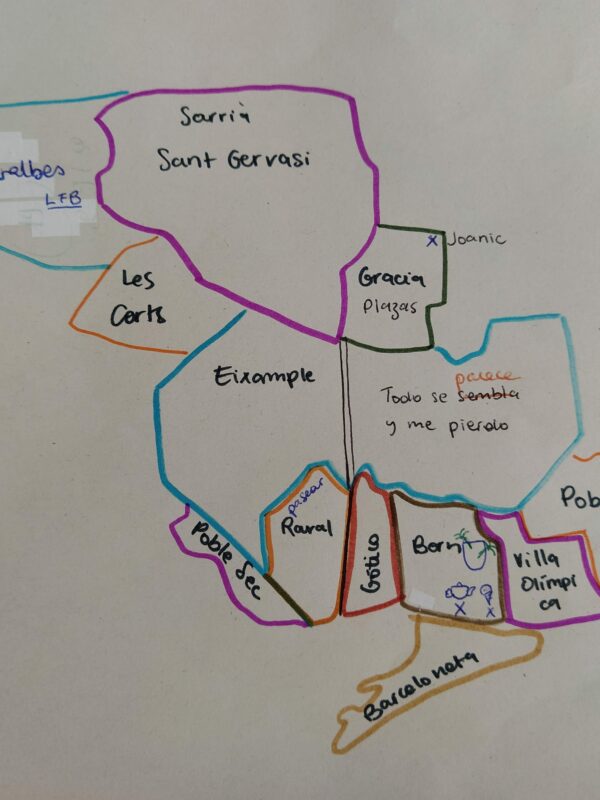 Sarrià
Sant Gervasi
ralbes
LFB
Joanic
Gracia
Plazas
Les
Corts
Eixample
parece
Todo se sembla
y me pierdo
pasear
Raval
Poble Sec
Gótico
Born
Pob
Villa
Olímpi
ca
Barceloneta